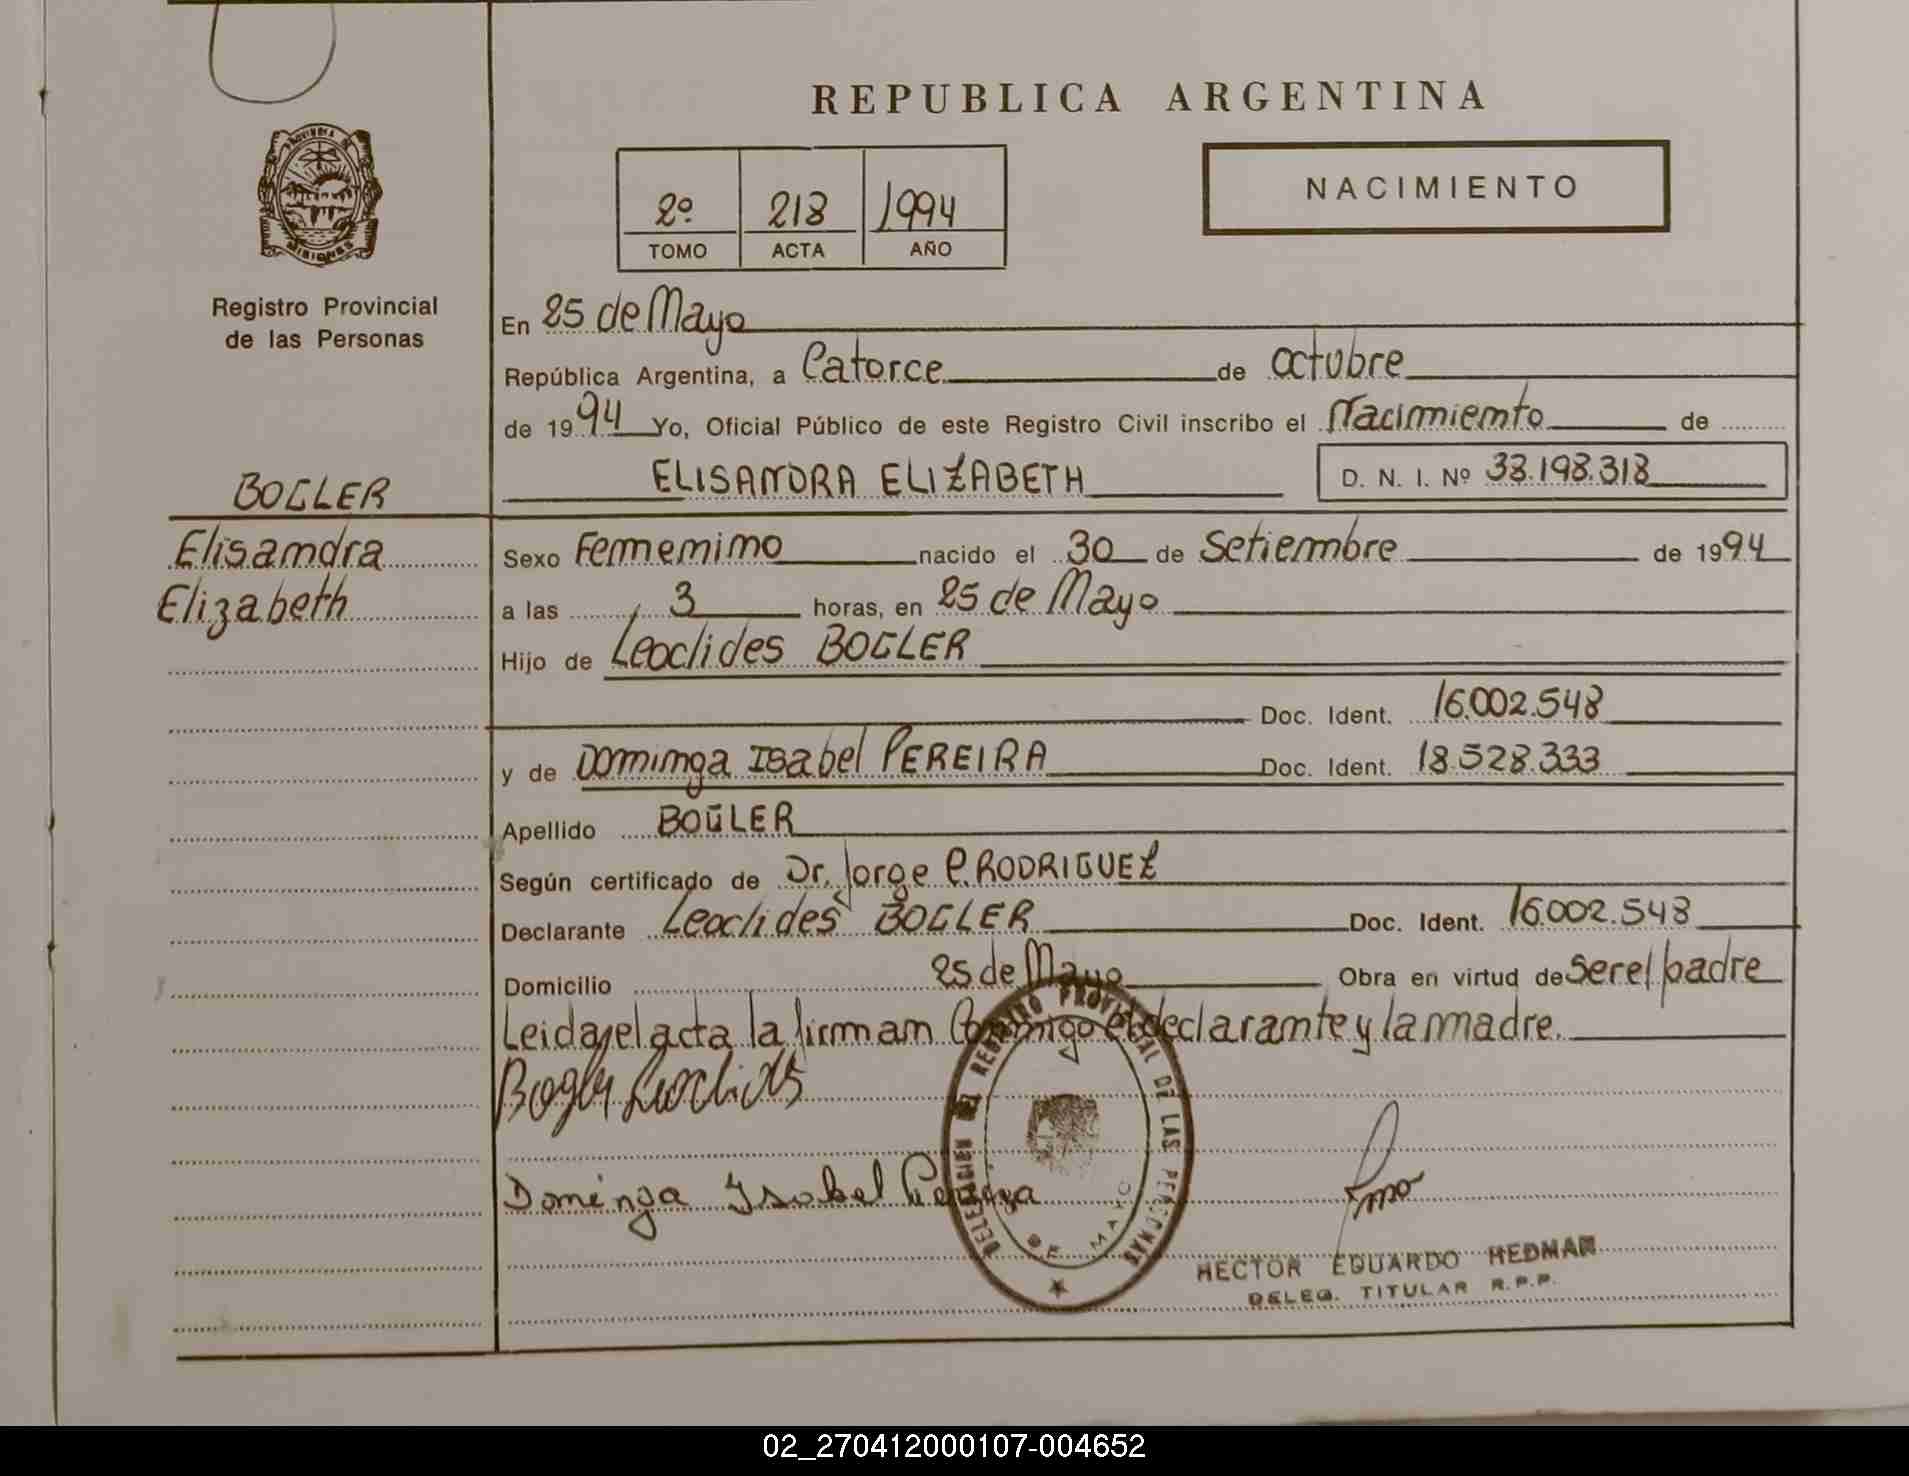 REPUBLICA ARGENTINA
2º 218 1994
TOMO ACTA AÑO
NACIMIENTO
Registro Provincial
de las Personas
BOGLER
Elisandra
Elizabeth
En 25 de Mayo
República Argentina, a Catorce de octubre
de 1994 Yo, Oficial Público de este Registro Civil inscribo el Nacimiento de
ELISANDRA ELIZABETH D. N. I. Nº 33.198.318
Sexo Femenino nacido el 30 de Setiembre de 1994
a las 3 horas, en 25 de Mayo
Hijo de Leoclides BOGLER
Doc. Ident. 16.002.548
y de Dominga Isabel PEREIRA Doc. Ident. 18.528.333
Apellido BOGLER
Según certificado de Dr. Jorge C. RODRIGUEZ
Declarante Leoclides BOGLER Doc. Ident. 16.002.548
Domicilio 25 de Mayo Obra en virtud de ser el padre
Leida el acta la firman Conmigo el declarante y la madre.
Bogler Leoclides
Dominga Isabel Pereira
DELEGACION DEL REGISTRO PROVINCIAL DE LAS PERSONAS
DE MAYO
HECTOR EDUARDO HEDMAN
DELEG. TITULAR R.P.P.
02_270412000107-004652